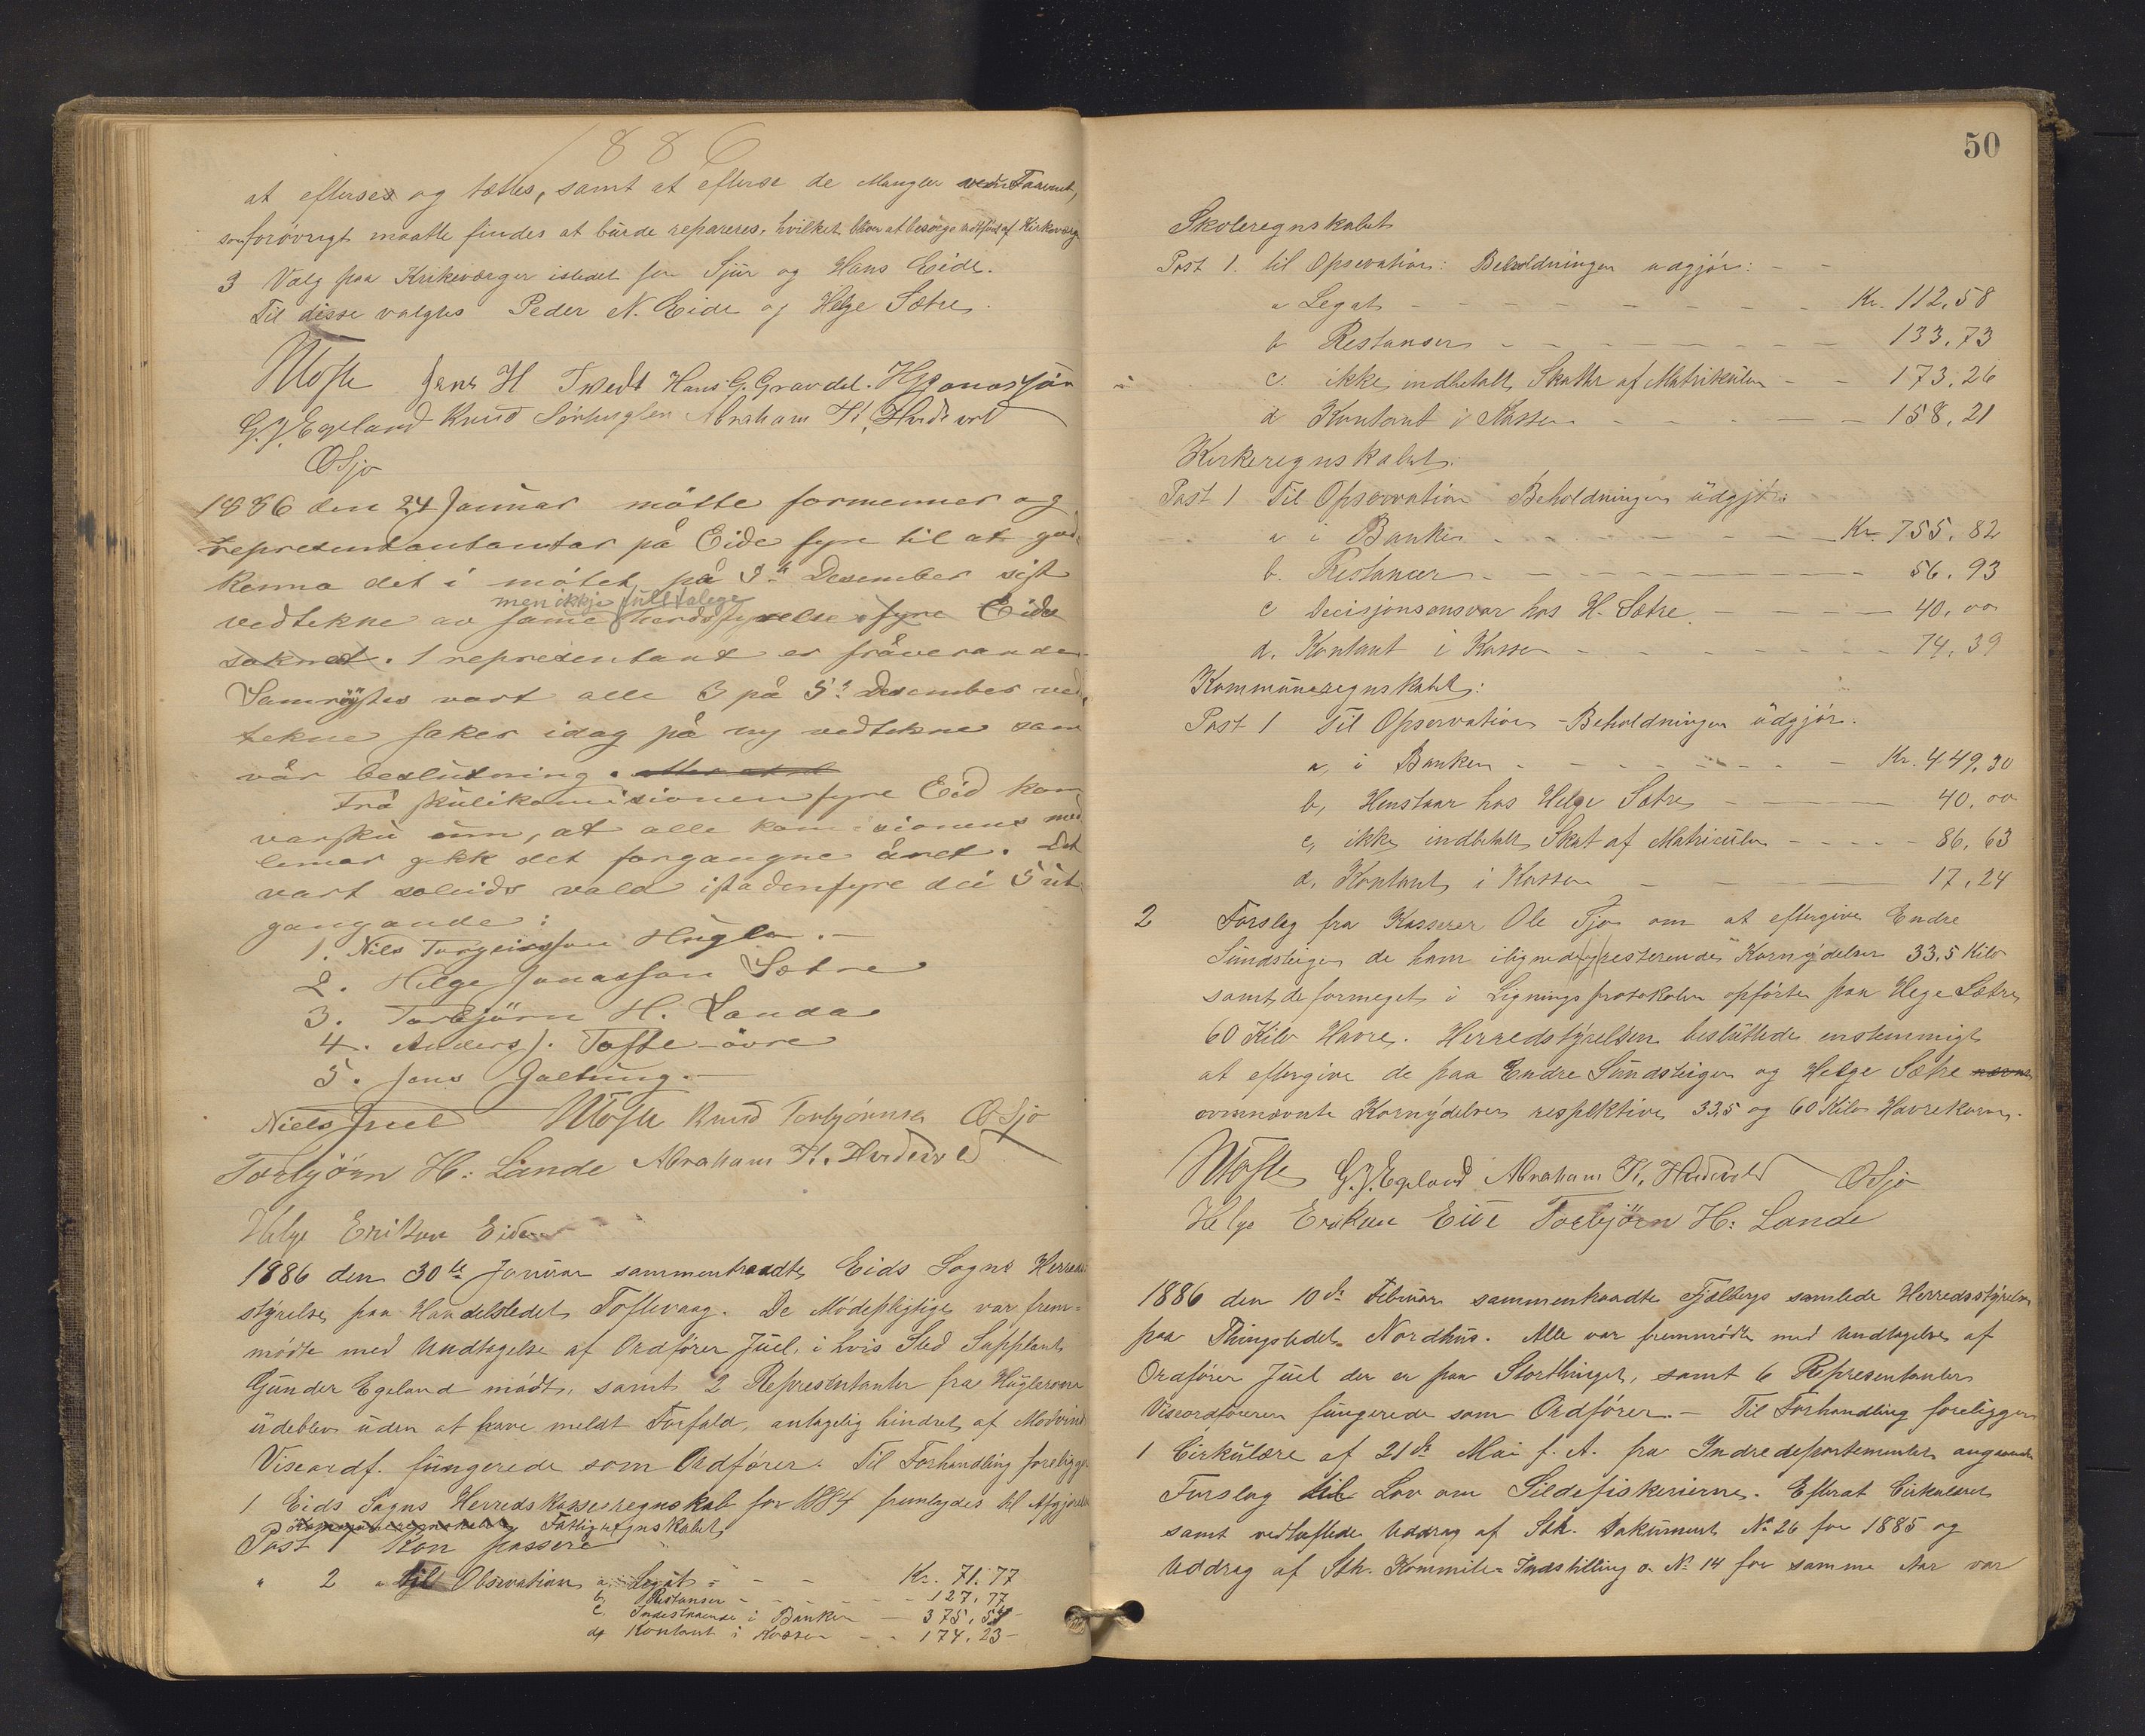 1886
at efterses og tættes, samt at efterse de Mangler ved Taarnet,
som forøvrigt maatte findes at burde repareres, hvilket bliver at besørge udført af Kirkeværge
3 Valg paa Kirkeværger istedet for Sjur og Hans Eide.
Til disse valgtes Peder N. Eide og Helge Sætre.
NTofte Jens H Tvedt Hans G. Gravdal. H Jonassøn
G. J. Egeland Knud Sørhuglen Abraham K. Hvidevold
OSjo
1886 den 24 Januar møtte formenner og
representantantar på Eide fyre til at god-
kenna det i møtet på 5te Desember sist
men ikkje fulltalege
vedtekne av same herodsstyrelse fyre Eide
soknet. 1 representant er fråverande
Samrøystes vart alle 3 på 5te Desember ved-
tekne saker idag på ny vedtekne som
vår beslutning.
Frå skulikomisionen fyre Eid kom
varsku um, at alle komisionens med-
lemer gekk det forgangne året. Det
vart soleids vald istadenfyre dei 5 ut-
gangande:
1. Nils Torgeirsson Hugla.
2. Helge Jonasson Sætre
3. Torbjørn H. Landa
4. Anders J. Tofte øvre
5. Jens Galtung.
Niels Juel NTofte Knud Torbjørnsen OSjo
Torbjørn H: Lande Abraham K. Hvidevold
Helge Erikson Eide
1886 den 30te Januar sammentraadte Eids Sogns Herreds
styrelse paa Handelstedet Toftevaag. De Mødepligtige var frem-
mødte med Undtagelse af Ordfører Juel, i hvis Sted Supplant
Gunder Egeland mødte, samt 2 Representanter fra Huglerone
udeblev uden at have meldt Forfald, antagelig hindret af Modvind
Viseordf. fungerede som Ordfører. Til Forhandling foreligger
1 Eids Sogns Herredskasseregnskab for 1884 fremlagdes til Afgjørelse
Kommuneregnskabet Fattigregnskabet
Post 1 Kan passere
" 2 " til Observation a. Legat - - - Kr. 71.77
b. Restanser - - - - - 127.77
c. Indestaaende i Banken - 375.54
d, Kontant i Kassen - - 174.23
50
Skoleregnskabet
Post 1. til Opservation: Beholdningen udgjør: - -
a Legat - - - - - - - - Kr. 112,58
b Restanser - - - - - - - 133,73
c. ikke indbetalt Skatter af Matrikulen - - 173,26
d Kontant i Kassen - - - - - 158,21
Kirkeregnskabet:
Post 1 Til Opservation Beholdningen udgjør:
a i Banken - - - - - - - Kr. 755,82
b. Restancer - - - - - - 56,93
c Decisjonsansvar hos H. Sætre - - - - 40,00
d. Kontant i Kassen - - - - - - 74,39
Kommuneregnskabet:
Post 1 Til Opservation - Beholdningen udgjør.
a, i Banken - - - - - - - Kr. 449,30
b, Henstaar hos Helge Sætre - - - - 40,00
c, ikke indbetalt Skat af Matriculen - - - - - 86,63
d. Kontant i Kassen - - - - 17,24
2 Forslag fra Kasserer Ole Sjo om at eftergive Endre
Sundsteigen de ham ilignede resterende Kornydelser 33,5 Kilo
samt de formeget i Ligningsprotokolen opførte paa Hege Sætre
60 Kilo Havre. Herredstyrelsen besluttede enstemmigt
at eftergive de paa Endre Sundsteigen og Helge Sætre nævnte
ovennævnte Kornydelser respektive 33,5 og 60 Kilo Havrekorn.
NTofte G. J. Egeland Abraham K. Hvidevold OSjo
Helge Eriksen Eide Torbjørn H: Lande
1886 den 10de Februar sammentraadte Fjelbergs samlede Herredsstyrelse
paa Thingstedet Nordhus. Alle var fremmødte med Undtagelse af
Ordfører Juel der er paa Storthinget, samt 6 Representanter
Viseordføreren fungerede som Ordfører. - Til Forhandling foreligger
1 Cirkulære af 21de Mai f. A. fra Indredepartementet angaaende
Forslag til Lov om Sildefiskerierne. Efterat Cirkulæret
samt vedheftede Uddrag af Sth. Dokument No 26 for 1885 og
Uddrag af Sth. Kommite-Indstilling o. No 14 for samme Aar var